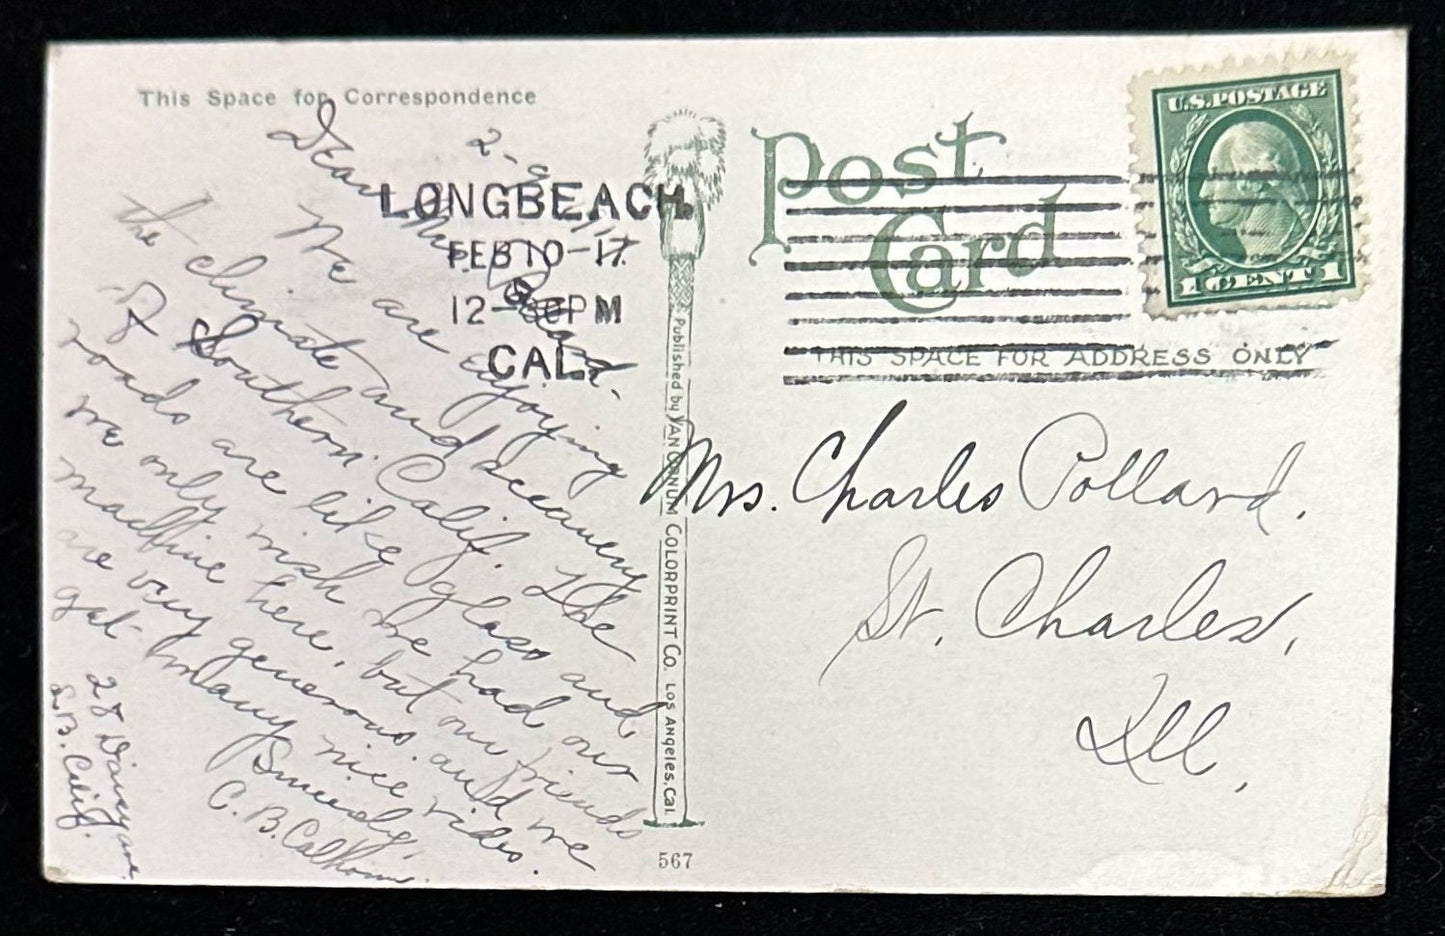 This Space for Correspondence
2-9
Dear Mrs.
We are enjoying
the climate and scenery
of Southern Calif. The
roads are like glass and
we only wish we had our
machine here, but our friends
are very generous and we
get many nice rides.
Sincerely,
C. B. Calhoun.
28 Daisy ave
L.B. Calif.
LONGBEACH.
FEB 10-17
12-30PM
CAL.
Published by VAN ORNUM COLORPRINT CO. LOS ANGELES, CAL.
567
Post
Card
U.S. POSTAGE
1 CENT 1
THIS SPACE FOR ADDRESS ONLY
Mrs. Charles Pollard.
St. Charles,
Ill,